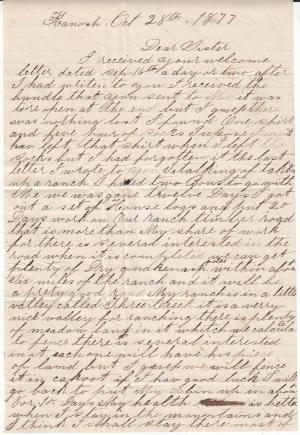 Kanosh. Oct 28th. 1877
Dear Sister
I received your welcome
letter dated Sep 16th a day or two after
I had written to you I received the
bundle that you sent to me it was
tore open at the end but I guess there
was nothing lost I found One shirt
and five pair of socks I suppose I must
hav left that shirt when I left the
socks but I had forgotten it the last
letter I wrote to you I talking of taking
up a ranch I had two Gous to go with
Me we was gone twelve Days I got
out a set of House logs and put 20
Days work on Our ranch timber road
that is more than My share of work
for there is several interested in the
road when it is completed we can get
plenty of Dry quakenash poles within
six miles of the ranch and it will be
a very good road My ranch is in a little
valley called Three Creek it is a verry
nice valley for ranching there is plenty
of meadow land in it which we calculate
to fence there is several interested
in it each one will have his piec
of land but I guess we will fence
it in cahoot if I hav good luck I will
go back to put My cabin up in
Days My health is better
when I stay in the mountains and
I think I shall stay there most of